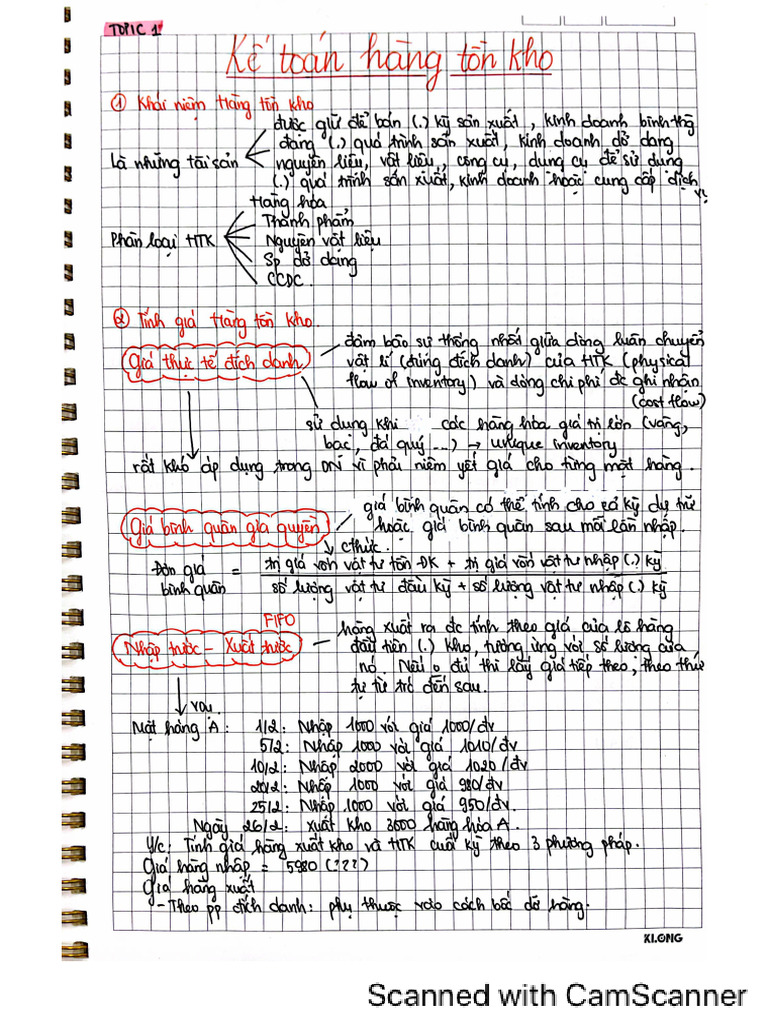 TOPIC 1
Kế toán hàng tồn kho
① Khái niệm Hàng tồn kho
được giữ để bán (.) kỳ sản xuất, kinh doanh bình thg
đang (.) quá trình sản xuất, kinh doanh dở dang
Là những tài sản
nguyên liệu, vật liệu, công cụ, dụng cụ để sử dụng
(.) quá trình sản xuất, kinh doanh hoặc cung cấp dịch
vụ
Hàng hóa
Thành phẩm
Phân loại HTK
Nguyên vật liệu
Sp dở dang
CCDC.
② Tính giá Hàng tồn kho.
Giá thực tế đích danh
đảm bảo sự thống nhất giữa dòng luân chuyển
vật lí (đúng đích danh) của HTK (physical
flow of inventory) và dòng chi phí đc ghi nhận
(cost flow)
sử dụng khi các hàng hóa giá trị lớn (vàng,
bạc, đá quý ...) → unique inventory
rất khó áp dụng trong DN vì phải niêm yết giá cho từng mặt hàng.
Giá bình quân gia quyền
giá bình quân có thể tính cho cả kỳ dự trữ
hoặc giá bình quân sau mỗi lần nhập.
cthức.
Đơn giá bình quân = trị giá vốn vật tư tồn ĐK + trị giá vốn vật tư nhập (.) kỳ
số lượng vật tư đầu kỳ + số lượng vật tư nhập (.) kỳ
FIFO
Nhập trước - Xuất trước
hàng xuất ra đc tính theo giá của lô hàng
đầu tiên (.) kho, tương ứng với số lượng của
nó. Nếu o đủ thì lấy giá tiếp theo, theo thứ
tự từ trc đến sau.
VD1
Mặt hàng A: 1/2: Nhập 1000 với giá 1000/đv
5/2: Nhập 1000 với giá 1010/đv
10/2: Nhập 2000 với giá 1020/đv
20/2: Nhập 1000 với giá 980/đv
25/2: Nhập 1000 với giá 950/đv.
Ngày 26/2: xuất kho 3000 hàng hóa A.
Y/c: Tính giá hàng xuất kho và HTK cuối kỳ theo 3 phương pháp.
Giá hàng nhập = 5980 (???)
Giá hàng xuất
- Theo pp đích danh: phụ thuộc vào cách bốc dỡ hàng.
KLONG
Scanned with CamScanner